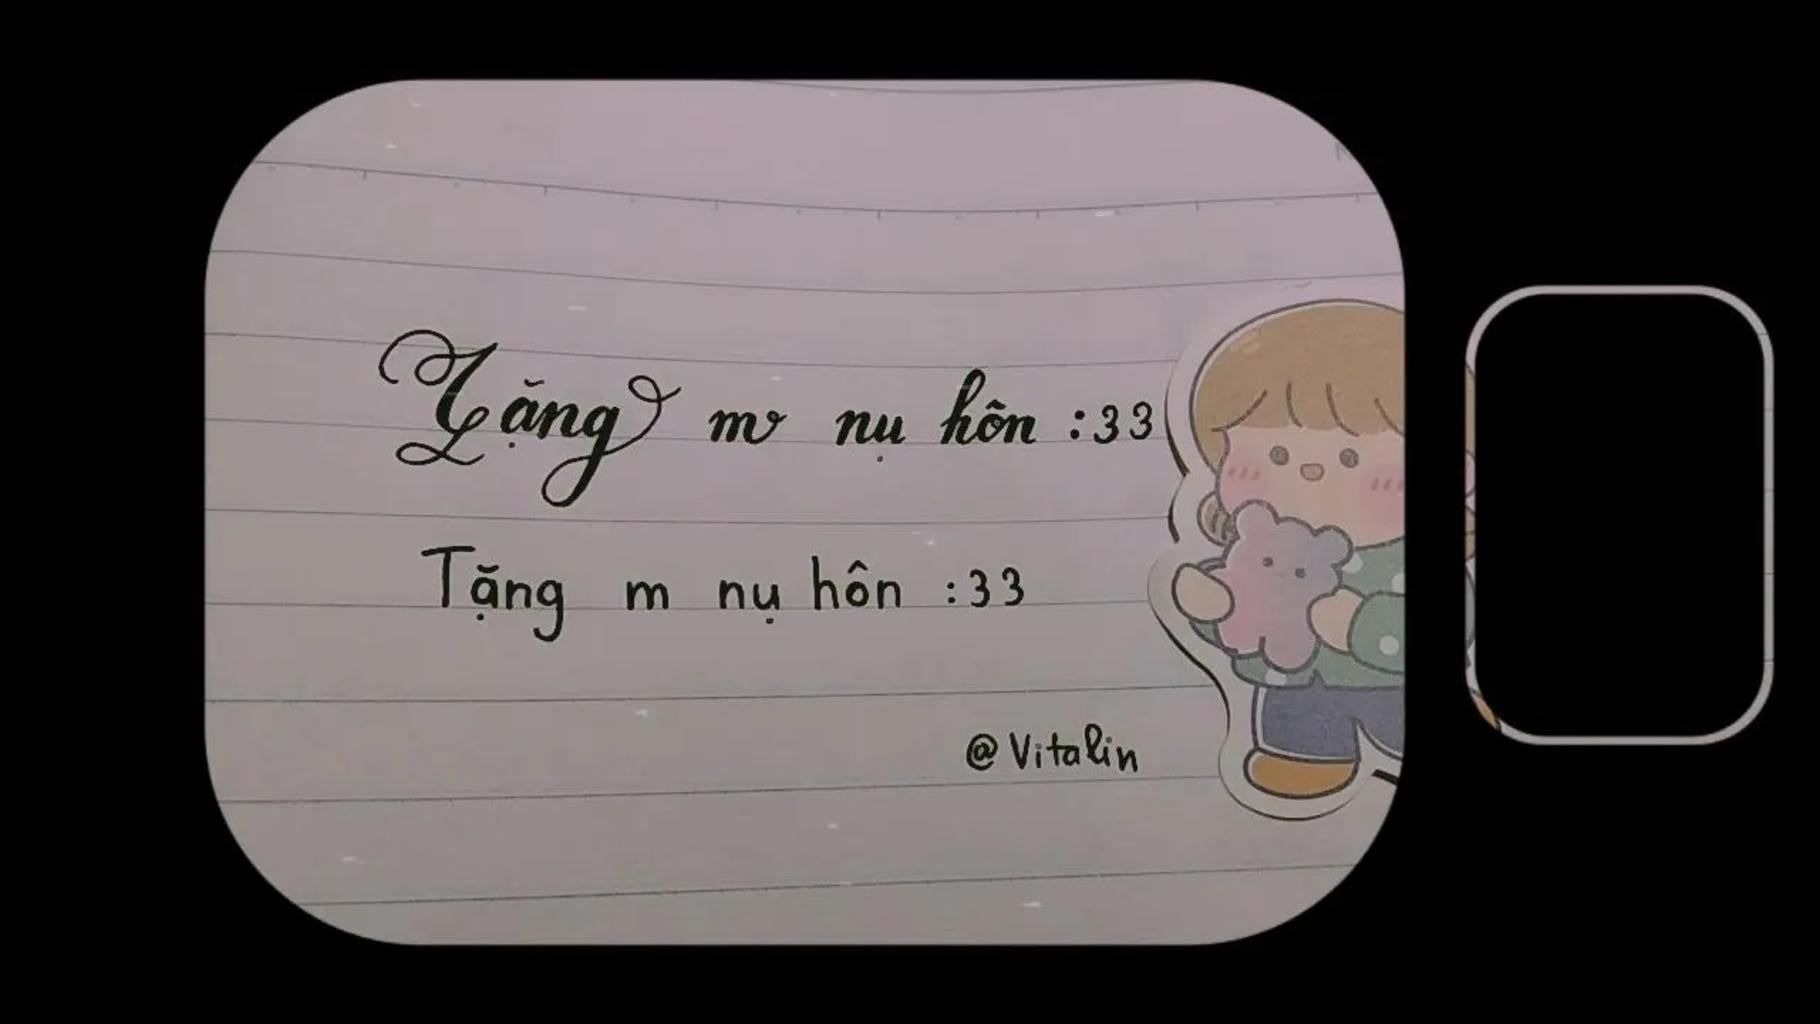 Tặng m nụ hôn :33
Tặng m nụ hôn :33
@Vitalin